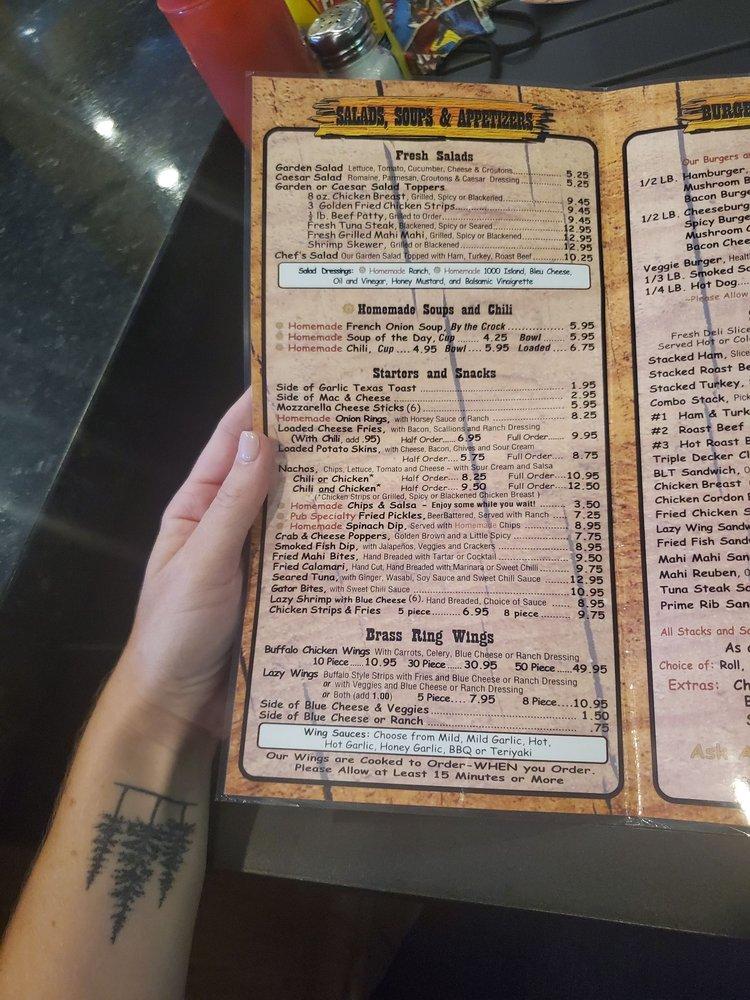 SALADS, SOUPS & APPETIZERS
Fresh Salads
Garden Salad Lettuce, Tomato, Cucumber, Cheese & Croutons 5.25
Caesar Salad Romaine, Parmesan, Croutons & Caesar Dressing 5.25
Garden or Caesar Salad Toppers
8 oz. Chicken Breast, Grilled, Spicy or Blackened 9.45
3 Golden Fried Chicken Strips 9.45
lb. Beef Patty, Grilled to Order 9.45
Fresh Tuna Steak, Blackened, Spicy or Seared 12.95
Fresh Grilled Mahi Mahi, Grilled, Spicy or Blackened 12.95
Shrimp Skewer, Grilled or Blackened 12.95
Chef's Salad Our Garden Salad Topped with Ham, Turkey, Roast Beef 10.25
Salad Dressings: Homemade Ranch, Homemade 1000 Island, Bleu Cheese,
Oil and Vinegar, Honey Mustard, and Balsamic Vinaigrette
Homemade Soups and Chili
Homemade French Onion Soup, By the Crock 5.95
Homemade Soup of the Day, Cup 4.25 Bowl 5.95
Homemade Chili, Cup .... 4.95 Bowl .. 5.95 Loaded .. 6.75
Starters and Snacks
Side of Garlic Texas Toast 1.95
Side of Mac & Cheese 2.95
Mozzarella Cheese Sticks (6) 5.95
Homemade Onion Rings, with Horsey Sauce or Ranch 8.25
Loaded Cheese Fries, with Bacon, Scallions and Ranch Dressing
(With Chili, add .95) Half Order....6.95 Full Order.. 9.95
Loaded Potato Skins, with Cheese, Bacon, Chives and Sour Cream
Half Order.... 5.75 Full Order.. 8.75
Nachos, Chips, Lettuce, Tomato and Cheese ~ with Sour Cream and Salsa
Chili or Chicken* Half Order .... 8.25 Full Order...10.95
Chili and Chicken* Half Order .... 9.50 Full Order.... 12.50
(*Chicken Strips or Grilled, Spicy or Blackened Chicken Breast )
Homemade Chips & Salsa ~ Enjoy some while you wait! 3.50
Pub Specialty Fried Pickles, BeerBattered, Served with Ranch 7.25
Homemade Spinach Dip, Served with Homemade Chips 8.95
Crab & Cheese Poppers, Golden Brown and a Little Spicy 7.75
Smoked Fish Dip, with Jalapeños, Veggies and Crackers 8.95
Fried Mahi Bites, Hand Breaded with Tartar or Cocktail 9.50
Fried Calamari, Hand Cut, Hand Breaded with Marinara or Sweet Chili 9.75
Seared Tuna, with Ginger, Wasabi, Soy Sauce and Sweet Chili Sauce 12.95
Gator Bites, with Sweet Chili Sauce 10.95
Lazy Shrimp with Blue Cheese (6). Hand Breaded, Choice of Sauce 8.95
Chicken Strips & Fries 5 piece 6.95 8 piece 9.75
Brass Ring Wings
Buffalo Chicken Wings With Carrots, Celery, Blue Cheese or Ranch Dressing
10 Piece.....10.95 30 Piece .... 30.95 50 Piece ....49.95
Lazy Wings Buffalo Style Strips with Fries and Blue Cheese or Ranch Dressing
or with Veggies and Blue Cheese or Ranch Dressing
or Both (add 1.00) 5 Piece.... 7.95 8 Piece....10.95
Side of Blue Cheese & Veggies 1.50
Side of Blue Cheese or Ranch .75
Wing Sauces: Choose from Mild, Mild Garlic, Hot,
Hot Garlic, Honey Garlic, BBQ or Teriyaki
Our Wings are Cooked to Order-WHEN you Order.
Please Allow at Least 15 Minutes or More
BURGE
Our Burgers a
1/2 LB. Hamburger,
Mushroom B
Bacon Burge
1/2 LB. Cheeseburg
Spicy Burge
Mushroom C
Bacon Chee
Veggie Burger, Healt
1/3 LB. Smoked S
1/4 LB. Hot Dog....
~Please Allow
Fresh Deli Slice
Served Hot or Col
Stacked Ham, Slice
Stacked Roast Be
Stacked Turkey,
Combo Stack, Pick
#1 Ham & Turk
#2 Roast Beef
#3 Hot Roast B
Triple Decker Cl
BLT Sandwich,
Chicken Breast
Chicken Cordon
Fried Chicken S
Lazy Wing Sandw
Fried Fish Sand
Mahi Mahi San
Mahi Reuben,
Tuna Steak Sa
Prime Rib San
All Stacks and Sa
As
Choice of: Roll,
Extras: Ch
Ask